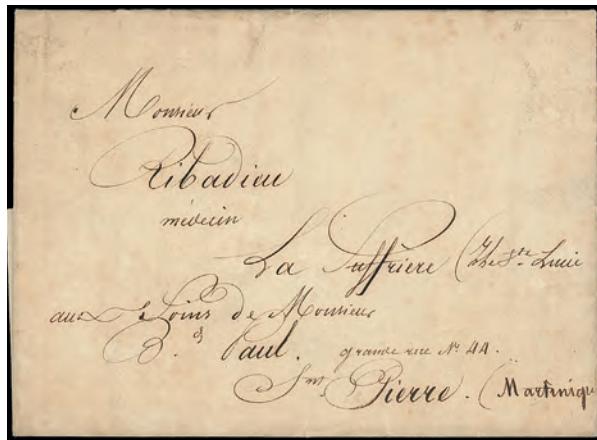 Monsieur
Ribadieu
médecin
La Suffrière (Isle Ste Lucie
aux Soins de Monsieur
B. Paul. grande rue No 44.
St Pierre. (Martinique